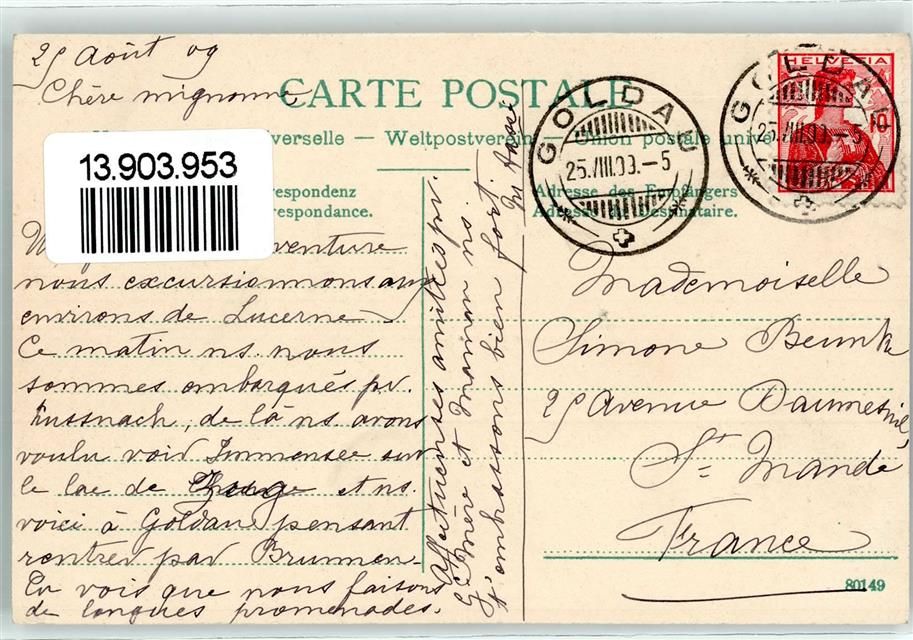 25 Août 09
Chère mignonne
CARTE POSTALE
verselle — Weltpostverein — Union postale unive
13.903.953
respondenz
respondance.
Adresse des Empfängers
Adresse du Destinataire.
GOLDAU
25.VIII.09.–5
GOLDAU
25.VIII.09.–5
HELVETIA
10
venture
nous excursionnons aux
environs de Lucerne
Ce matin ns. nous
sommes embarqués pr.
Kussnach, de là ns avons
voulu voir Immensee sur
le lac de Zug et ns.
voici à Goldau pensant
rentrer par Brunnen.
Tu vois que nous faisons
de longues promenades.
Affectueuses amitiés pr.
Gd Mère et Maman ns
t'embrassons bien fort
Mademoiselle
Simone
25 Avenue Daumesnil
St Mandé
France
80149